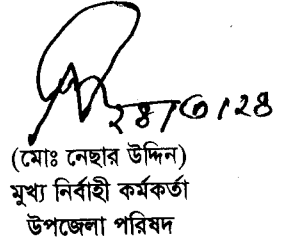 ২৪/৩/২৪
(মোঃ নেছার উদ্দিন)
মুখ্য নির্বাহী কর্মকর্তা
উপজেলা পরিষদ